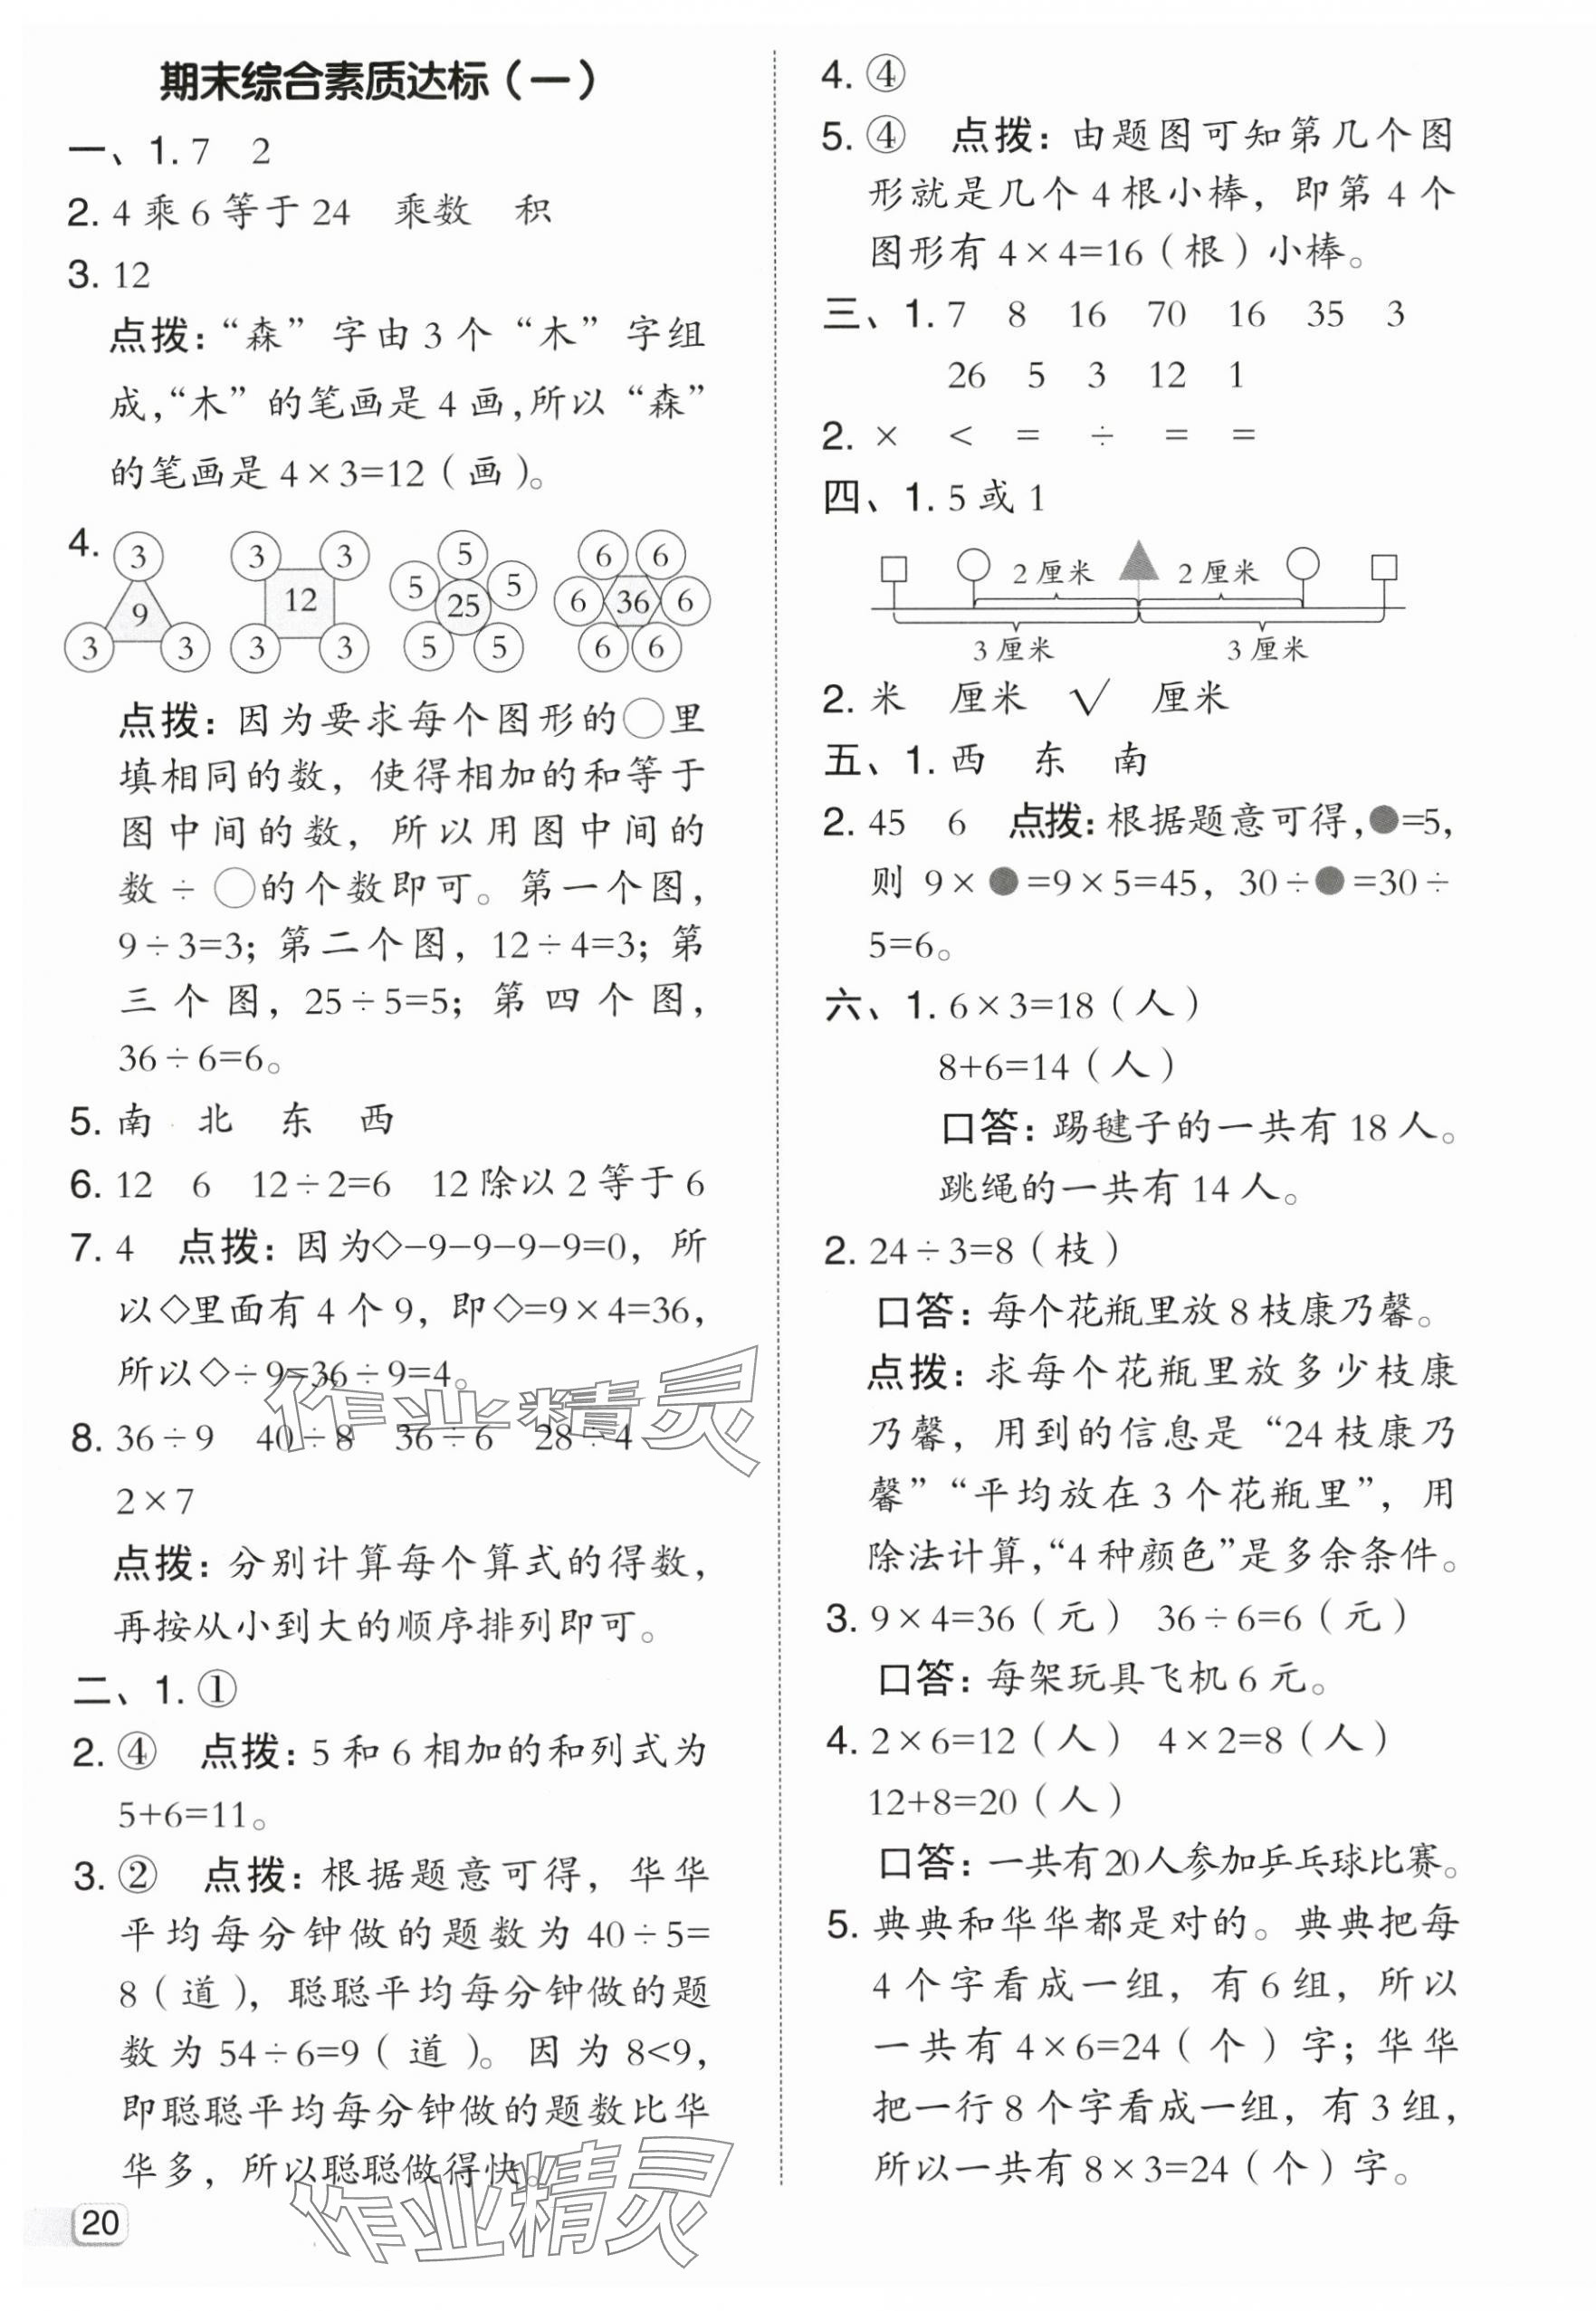 期末综合素质达标（一）
一、1. 7 2
2. 4乘6等于24 乘数 积
3. 12
点拨：“森”字由3个“木”字组
成，“木”的笔画是4画，所以“森”
的笔画是4×3=12（画）。
4. 3 3 3 9
3 3 3 3 12
5 5 5 5 5 25
6 6 6 6 6 6 36
点拨：因为要求每个图形的○里
填相同的数，使得相加的和等于
图中间的数，所以用图中间的
数÷○的个数即可。第一个图，
9÷3=3；第二个图，12÷4=3；第
三个图，25÷5=5；第四个图，
36÷6=6。
5. 南 北 东 西
6. 12 6 12÷2=6 12除以2等于6
7. 4 点拨：因为◇-9-9-9-9=0，所
以◇里面有4个9，即◇=9×4=36，
所以◇÷9=36÷9=4。
8. 36÷9 40÷8 36÷6 28÷4
2×7
点拨：分别计算每个算式的得数，
再按从小到大的顺序排列即可。
二、1. ①
2. ④ 点拨：5和6相加的和列式为
5+6=11。
3. ② 点拨：根据题意可得，华华
平均每分钟做的题数为40÷5=
8（道），聪聪平均每分钟做的题
数为54÷6=9（道）。因为8<9，
即聪聪平均每分钟做的题数比华
华多，所以聪聪做得快。
20
4. ④
5. ④ 点拨：由题图可知第几个图
形就是几个4根小棒，即第4个
图形有4×4=16（根）小棒。
三、1. 7 8 16 70 16 35 3
26 5 3 12 1
2. × < = ÷ = =
四、1. 5或1
2厘米 2厘米
3厘米 3厘米
2. 米 厘米 √ 厘米
五、1. 西 东 南
2. 45 6 点拨：根据题意可得，●=5，
则9×●=9×5=45，30÷●=30÷
5=6。
六、1. 6×3=18（人）
8+6=14（人）
口答：踢毽子的一共有18人。
跳绳的一共有14人。
2. 24÷3=8（枝）
口答：每个花瓶里放8枝康乃馨。
点拨：求每个花瓶里放多少枝康
乃馨，用到的信息是“24枝康乃
馨”“平均放在3个花瓶里”，用
除法计算，“4种颜色”是多余条件。
3. 9×4=36（元） 36÷6=6（元）
口答：每架玩具飞机6元。
4. 2×6=12（人） 4×2=8（人）
12+8=20（人）
口答：一共有20人参加乒乓球比赛。
5. 典典和华华都是对的。典典把每
4个字看成一组，有6组，所以
一共有4×6=24（个）字；华华
把一行8个字看成一组，有3组，
所以一共有8×3=24（个）字。
作业精灵
作业精灵